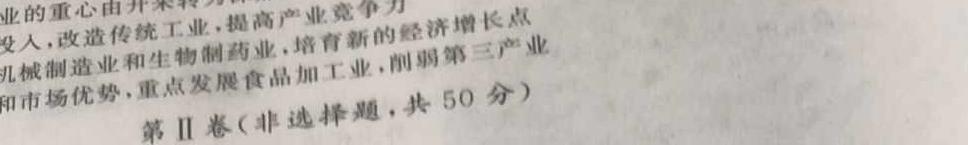 业的重心由开采转为
投入,改造传统工业,提高产业竞争力
机械制造业和生物制药业,培育新的经济增长点
和市场优势,重点发展食品加工业,削弱第三产业
第Ⅱ卷(非选择题,共 50 分)